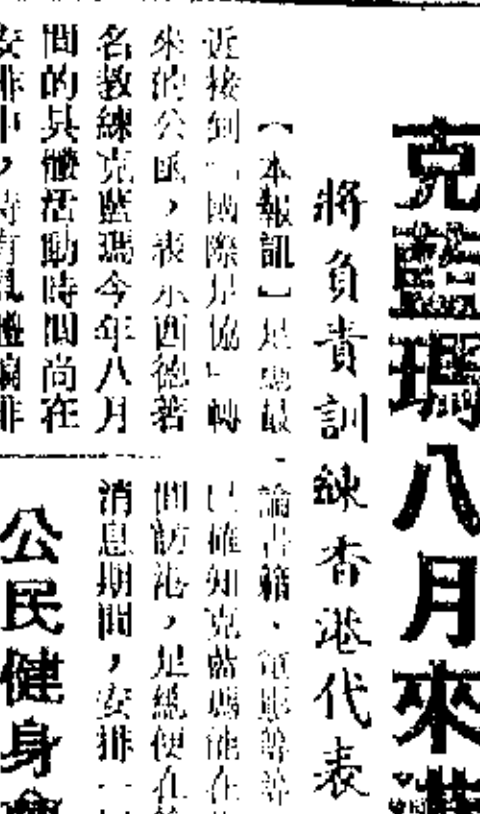 克藍瑪八月來港
將負責訓練香港代表
【本報訊】足總最
近接到「國際足協」轉
來的公函,表示西德著
名教練克藍瑪今年八月
間的具體活動時間尚在
安排中,
論書籍、電影等等
已確知克藍瑪能在
間訪港,足總便在
消息期間,安排一
公民健身會